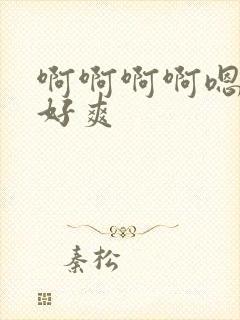 啊啊啊啊嗯
好爽
秦松